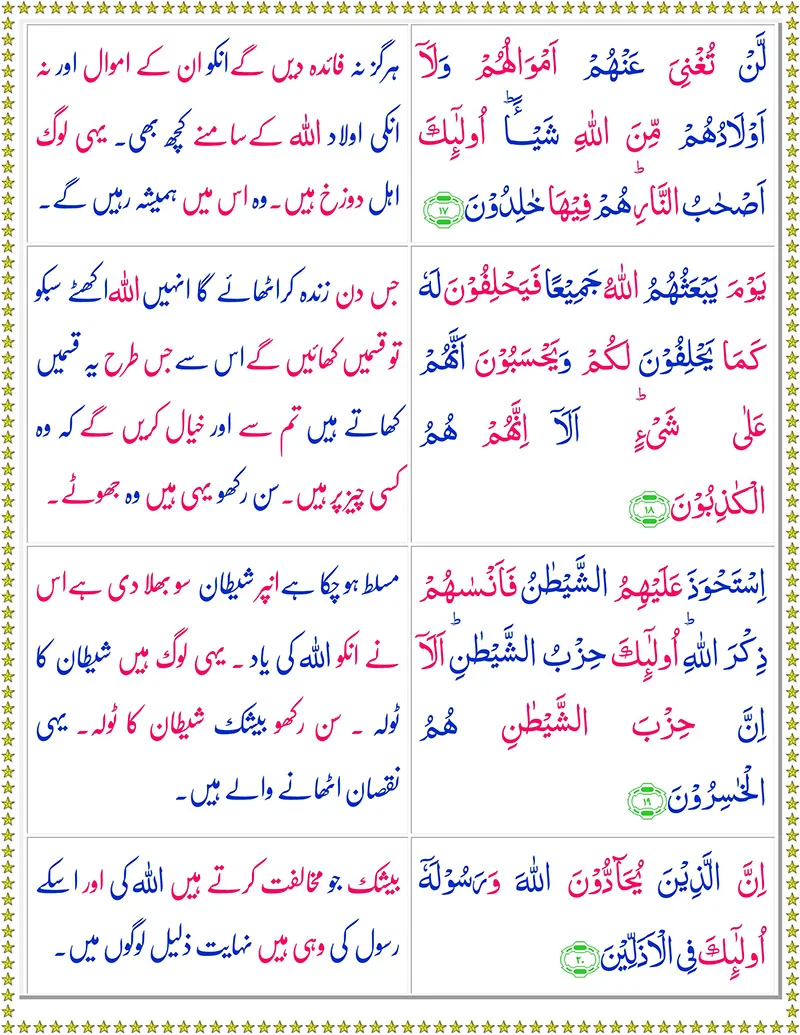 لَّنْ تُغْنِىَ عَنْهُمْ اَمْوَالُهُمْ وَلَآ
اَوْلَادُهُمْ مِّنَ اللّٰهِ شَيْـــًٔاؕ اُولٰٓئِكَ
اَصْحٰبُ النَّارِؕ هُمْ فِيْهَا خٰلِدُوْنَ ۱۷
ہرگز نہ فائدہ دیں گے انکو ان کے اموال اور نہ
انکی اولاد اللہ کے سامنے کچھ بھی۔ یہی لوگ
اہل دوزخ ہیں۔ وہ اس میں ہمیشہ رہیں گے۔
يَوْمَ يَبْعَثُهُمُ اللّٰهُ جَمِيْعًا فَيَحْلِفُوْنَ لَهٗ
كَمَا يَحْلِفُوْنَ لَكُمْ وَيَحْسَبُوْنَ اَنَّهُمْ
عَلٰى شَىْءٍؕ اَلَآ اِنَّهُمْ هُمُ
الْكٰذِبُوْنَ ۱۸
جس دن زندہ کر اٹھائے گا انہیں اللہ اکھٹے سبکو
تو قسمیں کھائیں گے اس سے جس طرح یہ قسمیں
کھاتے ہیں تم سے اور خیال کریں گے کہ وہ
کسی چیز پر ہیں۔ سن رکھو یہی ہیں وہ جھوٹے۔
اِسْتَحْوَذَ عَلَيْهِمُ الشَّيْطٰنُ فَاَنْسٰىهُمْ
ذِكْرَ اللّٰهِؕ اُولٰٓئِكَ حِزْبُ الشَّيْطٰنِؕ اَلَآ
اِنَّ حِزْبَ الشَّيْطٰنِ هُمُ
الْخٰسِرُوْنَ ۱۹
مسلط ہو چکا ہے انپر شیطان سو بھلا دی ہے اس
نے انکو اللہ کی یاد ۔ یہی لوگ ہیں شیطان کا
ٹولہ ۔ سن رکھو بیشک شیطان کا ٹولہ۔ یہی
نقصان اٹھانے والے ہیں۔
اِنَّ الَّذِيْنَ يُحَآدُّوْنَ اللّٰهَ وَرَسُوْلَهٗۤ
اُولٰٓئِكَ فِى الْاَذَلِّيْنَ ۲۰
بیشک جو مخالفت کرتے ہیں اللہ کی اور اسکے
رسول کی وہی ہیں نہایت ذلیل لوگوں میں۔